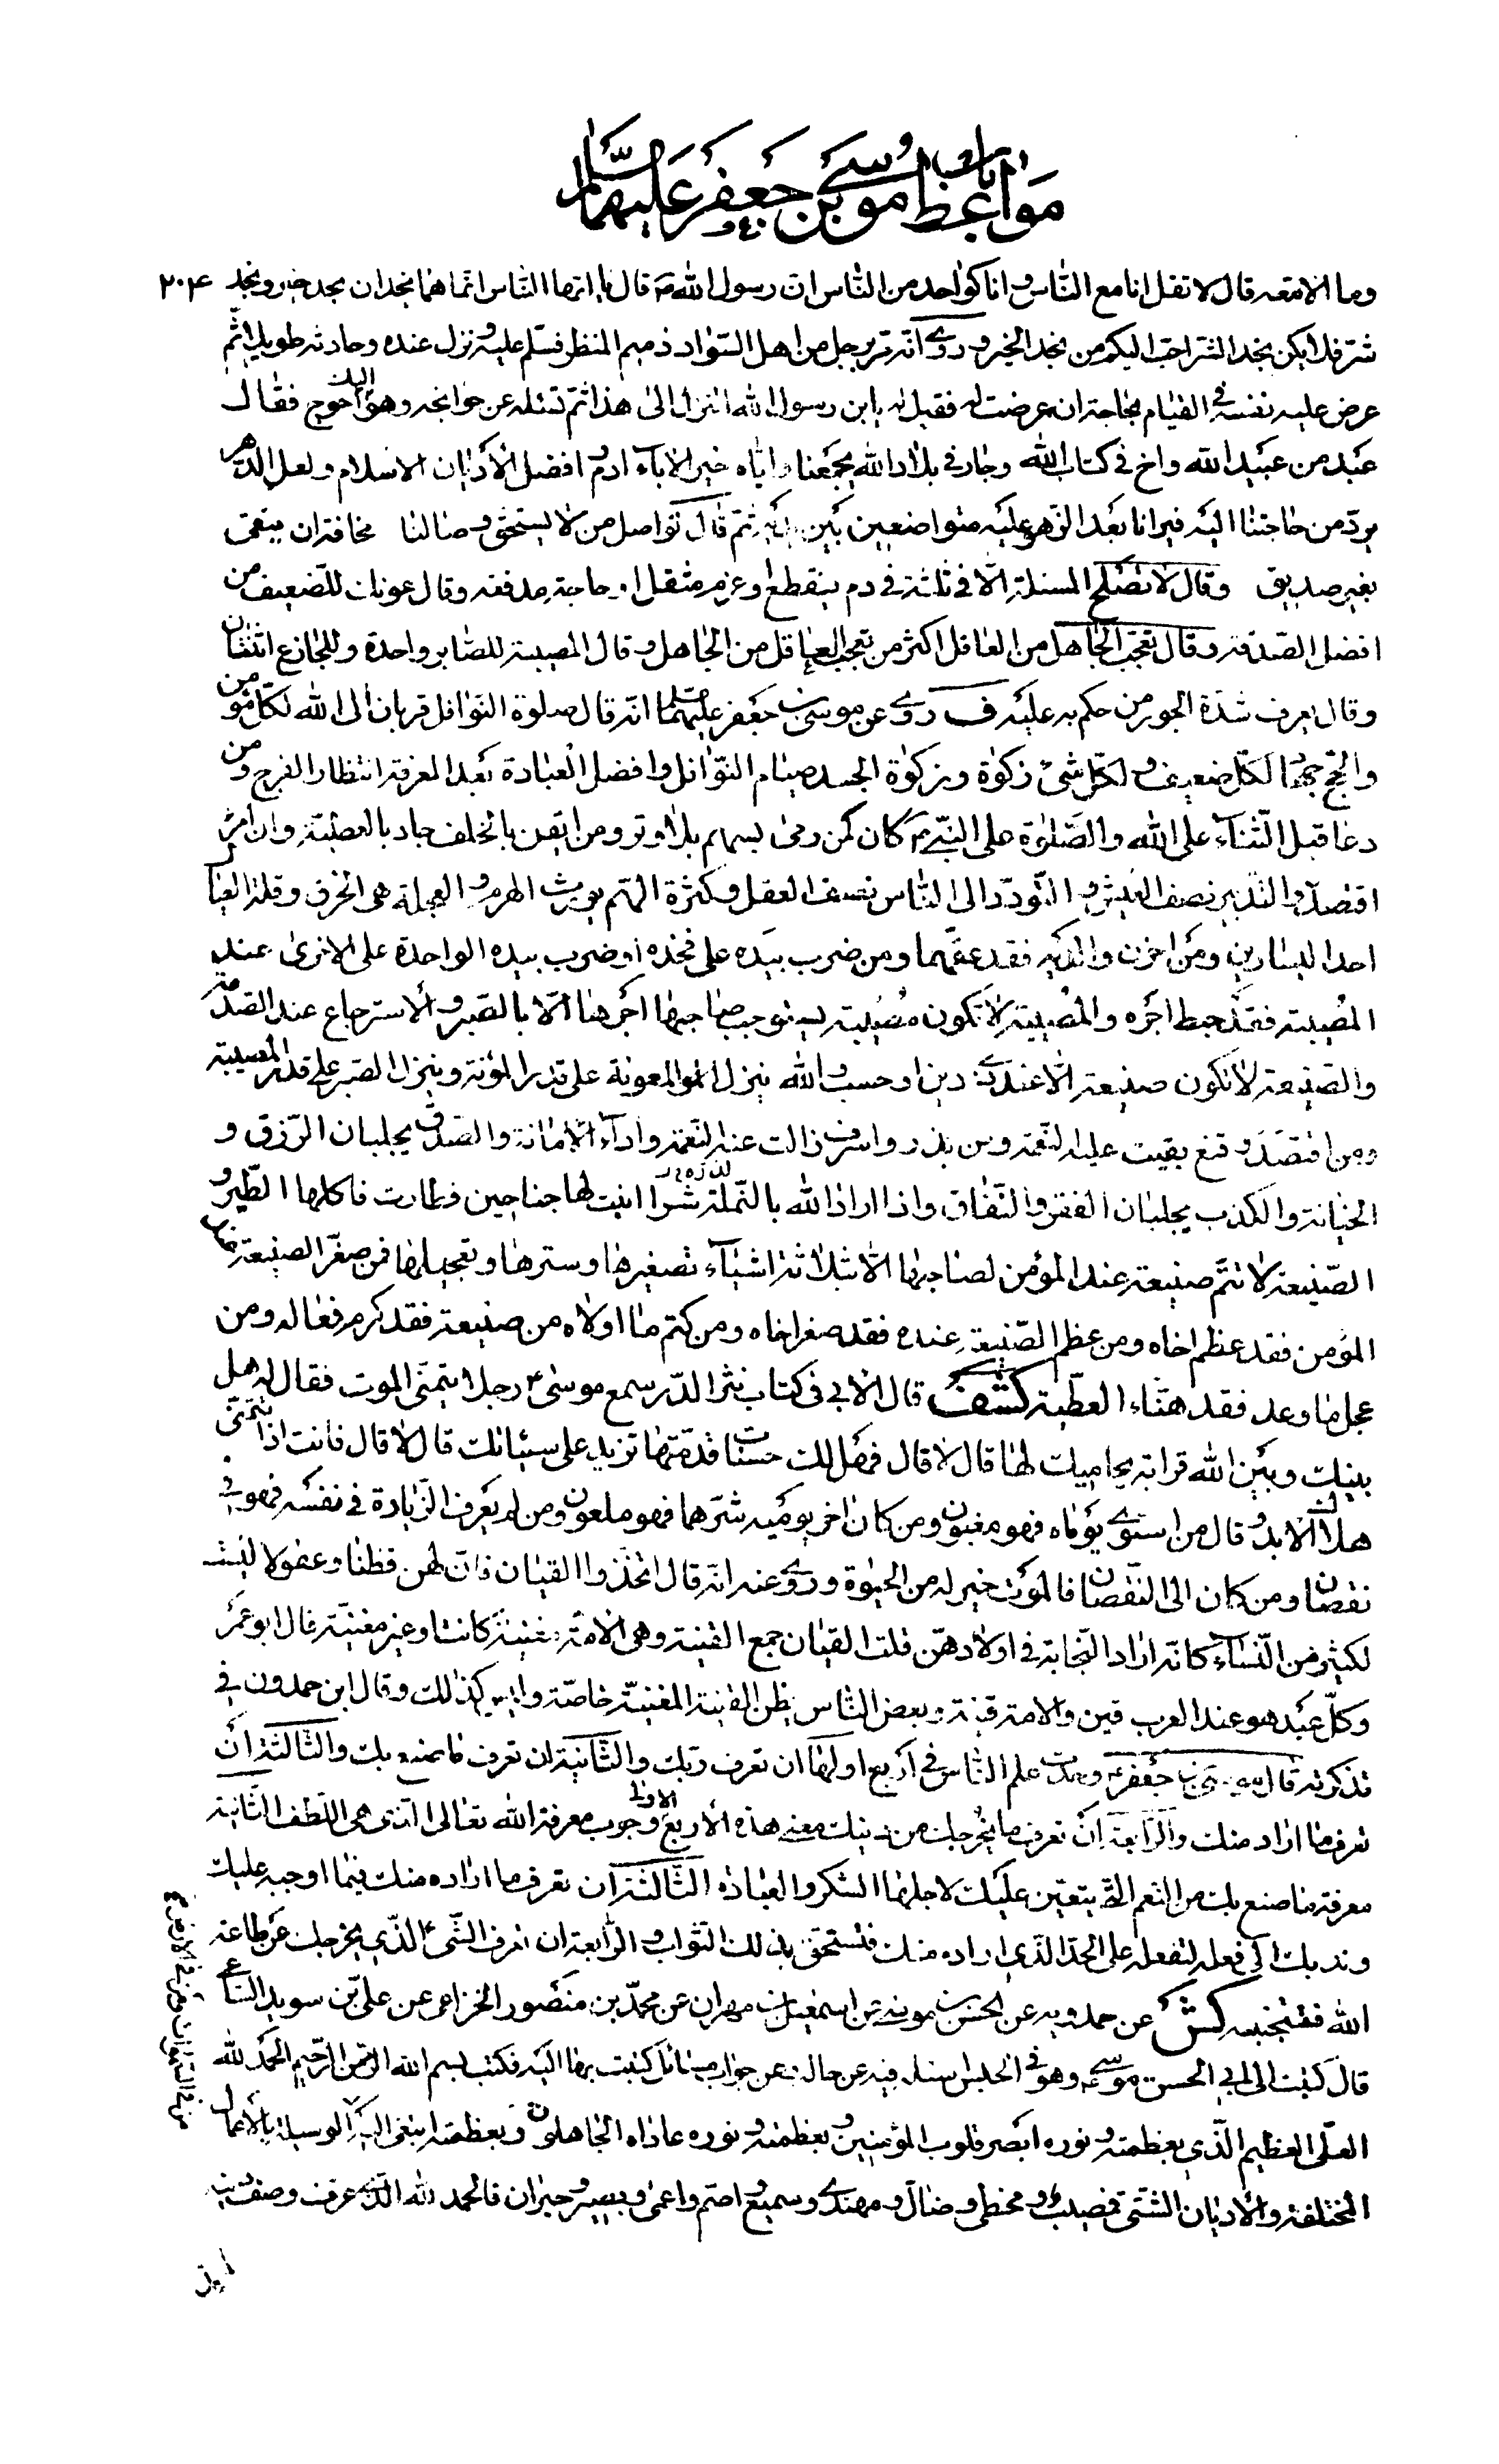 باب
مواعظ موسى بن جعفر عليهما السلام
٢٠۴
وما الامعه قال لا تقل انا مع الناس وانا كواحد من الناس ان رسول الله ص قال يا ايها الناس انما هما نجدان نجد خير ونجد
شر فلا يكن نجد الشر احب اليكم من نجد الخير وروى انه مر برجل من اهل السواد ذميم المنظر فسلم عليه ونزل عنده وحادثه طويلا ثم
عرض عليه نفسه في القيام بحاجة ان عرضت له فقيل له يا ابن رسول الله اتنزل الى هذا ثم تسئله عن حوائجه وهو اليك احوج فقال
عبد من عبيد الله واخ في كتاب الله وجار في بلاد الله يجمعنا واياه خير الاباء ادم وافضل الاديان الاسلام ولعل الدهر
يرد من حاجتنا اليه فيرانا بعد الزهو عليه متواضعين بين يديه ثم قال نواصل من لا يستحق وصالنا مخافة ان نبقى
بغير صديق وقال لا تصلح المسئلة الا في ثلثة في دم منقطع او غرم مثقل او حاجة مدقعه وقال عونك للضعيف من
افضل الصدقة وقال تعجب الجاهل من العاقل اكثر من تعجب العاقل من الجاهل وقال المصيبة للصابر واحدة وللجازع اثنتان
وقال يعرف شدة الجور من حكم به عليه ف روى عن موسى بن جعفر عليهما السلم انه قال صلوة النوافل قربان الى الله لكل مؤمن
والحج جهاد لكل ضعيف ولكل شئ زكوة وزكوة الجسد صيام النوافل وافضل العبادة بعد المعرفة انتظار الفرج ومن
دعا قبل الثناء على الله والصلوة على النبي ص كان كمن رمى بسهم بلا وتر ومن ايقن بالخلف جاد بالعطية وان امرؤ
اقتصد والتدبير نصف العيش والتودد الى الناس نصف العقل وكثرة الهم يورث الهرم والعجلة هى الخرق وقلة العيال
احد اليسارين ومن احزن والديه فقد عقهما ومن ضرب بيده على فخذه او ضرب بيده الواحدة على الاخرى عند
المصيبة فقد حبط اجره والمصيبة لا تكون مصيبة يستوجب صاحبها اجرها الا بالصبر والاسترجاع عند الصدمة
والصنيعة لا تكون صنيعة الا عند ذى دين او حسب والله ينزل المعونة على قدر المؤنة وينزل الصبر على قدر المصيبة
ومن اقتصد وقنع بقيت عليه النعمة ومن بذر واسرف زالت عنه النعمة واداء الامانة والصدق يجلبان الرزق و
الخيانة والكذب يجلبان الفقر والنفاق واذا اراد الله بالنملة شرا انبت لها جناحين فطارت فاكلها الطير و
الصنيعة لا تتم صنيعة عند المؤمن لصاحبها الا بثلاثة اشياء تصغيرها وسترها وتعجيلها فمن صغر الصنيعة عند
المؤمن فقد عظم اخاه ومن عظم الصنيعة عنده فقد صغر اخاه ومن كتم ما اولاه من صنيعة فقد كرم فعاله ومن
عجل ما وعد فقد هنأ العطية كشف قال الابى فى كتاب نثر الدر سمع موسى ع رجلا يتمنى الموت فقال له هل
بينك وبين الله قرابة يحاميك لها قال لا قال فهل لك حسنات قدمتها تزيد على سيئاتك قال لا قال فانت اذا تتمنى
هلاك الابد وقال من استوى يوماه فهو مغبون ومن كان اخر يوميه شرهما فهو ملعون ومن لم يعرف الزيادة في نفسه فهو في
نقصان ومن كان الى النقصان فالموت خير له من الحيوة وروى عنه انه قال اتخذوا القيان فان لهن فطنا وعقولا ليست
لكثير من النساء كانه اراد النجابة في اولادهن قلت القيان جمع القينة وهى الامة مغنية كانت او غير مغنية قال ابو عمر
وكل عبد هو عند العرب قين والامة قينة وبعض الناس يظن القينة المغنية خاصة وليس كذلك وقال ابن حمدون في
تذكرته قال موسى بن جعفر ع وجدت علم الناس في اربع اولها ان تعرف ربك والثانية ان تعرف ما صنع بك والثالثة ان
تعرف ما اراد منك والرابعة ان تعرف ما يخرجك من دينك معنى هذه الاربع الاولى وجوب معرفة الله تعالى التي هى اللطف الثانية
معرفة ما صنع بك من النعم التى يتعين عليك لاجلها الشكر والعبادة الثالثة ان تعرف ما اراده منك فيما اوجبه عليك
وندبك الى فعله لتفعله على الحد الذي اراده منك فتستحق بذلك الثواب والرابعة ان تعرف الشئ الذي يخرجك عن طاعة
الله فتجتنبه كش عن حمدويه عن الحسن بن موسى عن اسمعيل بن مهران عن محمد بن منصور الخزاعى عن على بن سويد السائى
قال كتبت الى ابي الحسن موسى ع وهو في الحبس اسئله فيه عن حاله وعن جواب مسائل كتبت بها اليه فكتب بسم الله الرحمن الرحيم الحمد لله
العلى العظيم الذي بعظمته ونوره ابصر قلوب المؤمنين وبعظمته ونوره عاداه الجاهلون وبعظمته ابتغى اليه الوسيلة بالاعمال
المختلفة والاديان الشتى فمصيب ومخطئ وضال ومهتدى وسميع واصم واعمى وبصير وحيران فالحمد لله الذى عرف وصف دينه